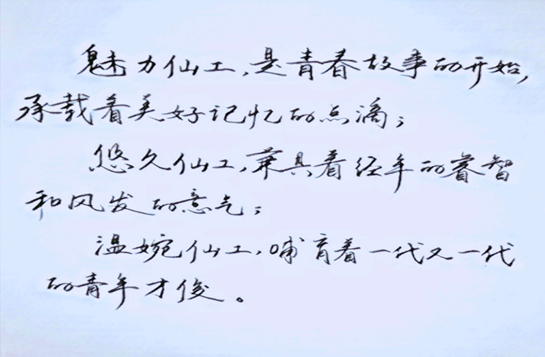 魅力仙工,是青春故事的开始,
承载着美好记忆的点滴;
悠久仙工,兼具着经年的睿智
和风发的意气;
温婉仙工,哺育着一代又一代
的青年才俊。